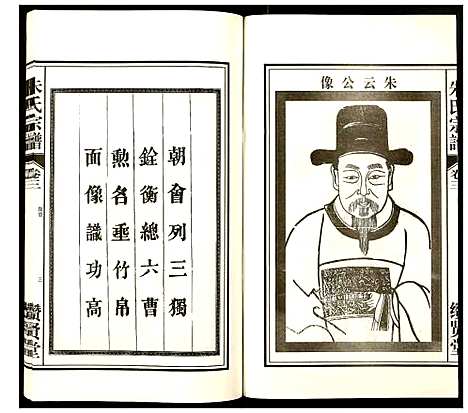 朱氏宗譜
卷三
朱云公像
朝會列三獨
銓衡總六曹
勲名垂竹帛
面像識功高
朱氏宗譜
卷三
三
賢堂